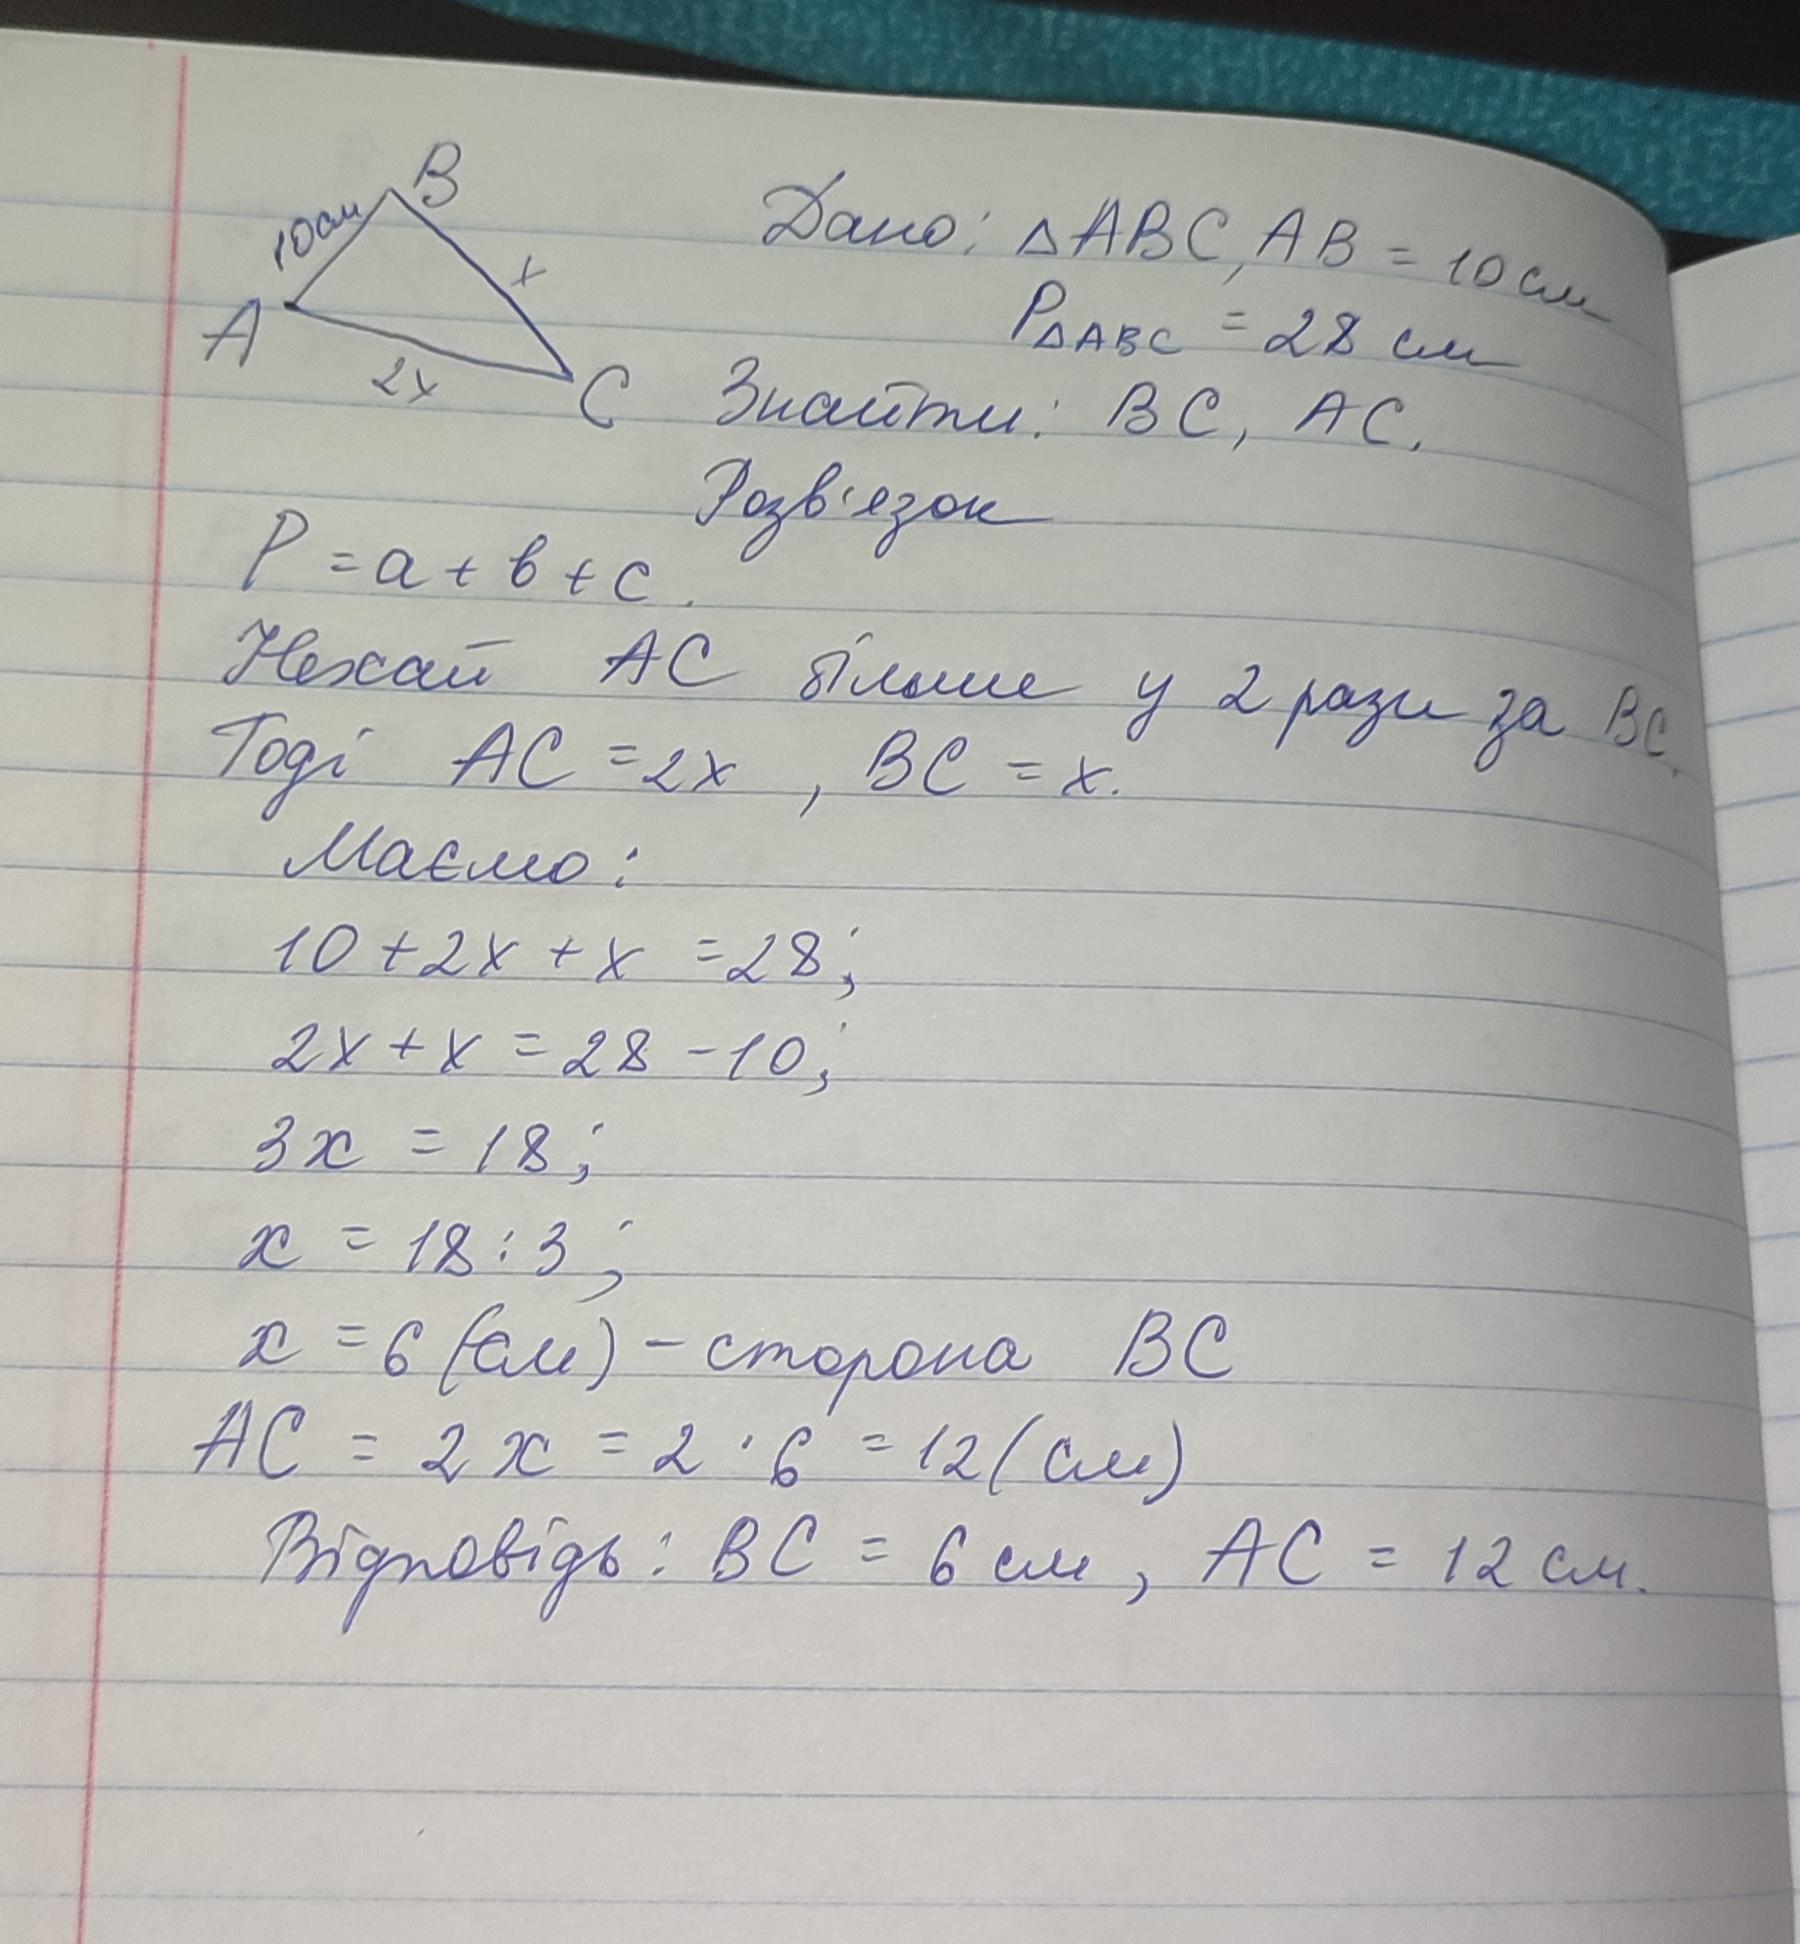 B
10см
x
A
2x
C
Дано: △ABC, AB = 10 см
P△ABC = 28 см
Знайти: BC, AC.
Розв'язок
P = a + b + c.
Нехай AC більше у 2 рази за BC.
Тоді AC = 2x, BC = x.
Маємо:
10 + 2x + x = 28;
2x + x = 28 - 10;
3x = 18;
x = 18 : 3;
x = 6 (см) - сторона BC
AC = 2x = 2 · 6 = 12 (см)
Відповідь: BC = 6 см, AC = 12 см.